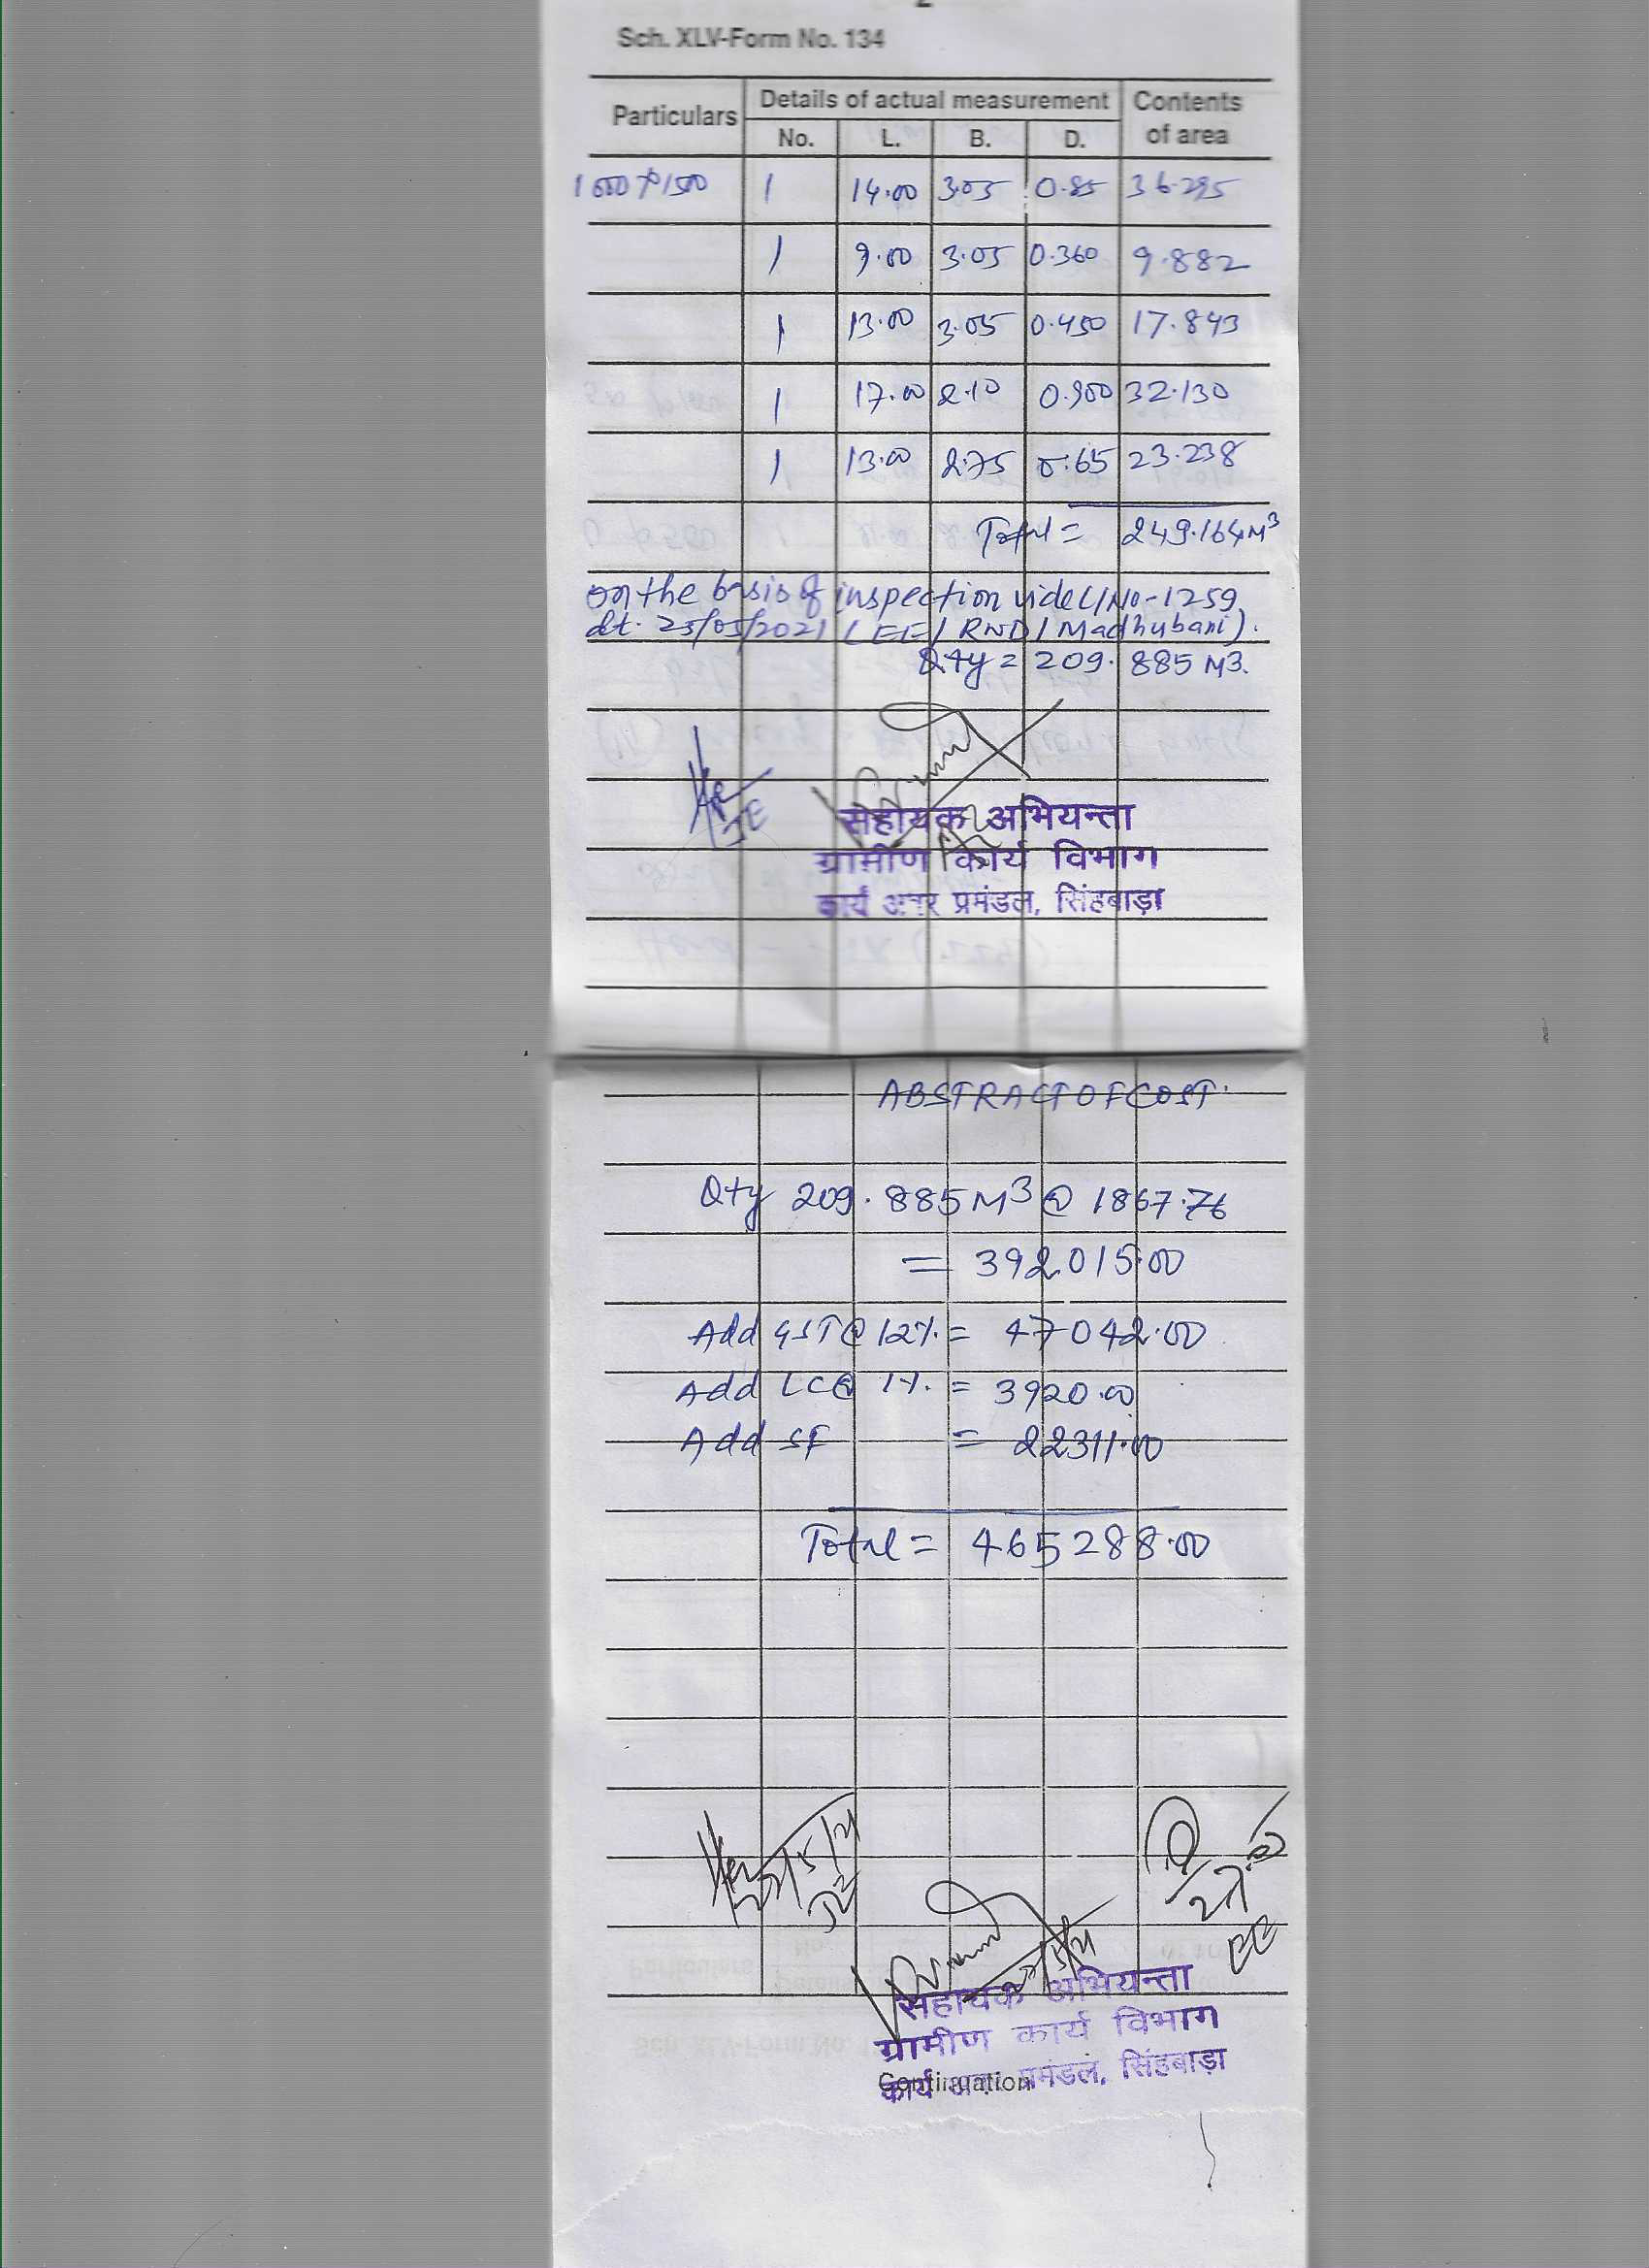 Sch. XLV-Form No. 134
Particulars Details of actual measurement Contents of area
No. L. B. D.
1 14.00 3.05 0.85 36.295
1 9.00 3.05 0.360 9.882
1 13.00 3.05 0.450 17.843
1 17.00 2.10 0.900 32.130
1 13.00 2.75 0.65 23.238
Total = 249.164 M3
on the basis of inspection vide L/No-1259
dt. 25/05/2021 (EE/RWD/Madhubani).
Qty = 209.885 M3.
JE
सहायक अभियन्ता
ग्रामीण कार्य विभाग
कार्य अवर प्रमंडल, सिंहबाड़ा
ABSTRACT OF COST.
Qty 209.885 M3 @ 1867.76
= 392015.00
Add GST @ 12%. = 47042.00
Add LC @ 1%. = 3920.00
Add SF = 22311.00
Total = 465288.00
JE
EE
सहायक अभियन्ता
ग्रामीण कार्य विभाग
कार्य अवर प्रमंडल, सिंहबाड़ा
Continuation